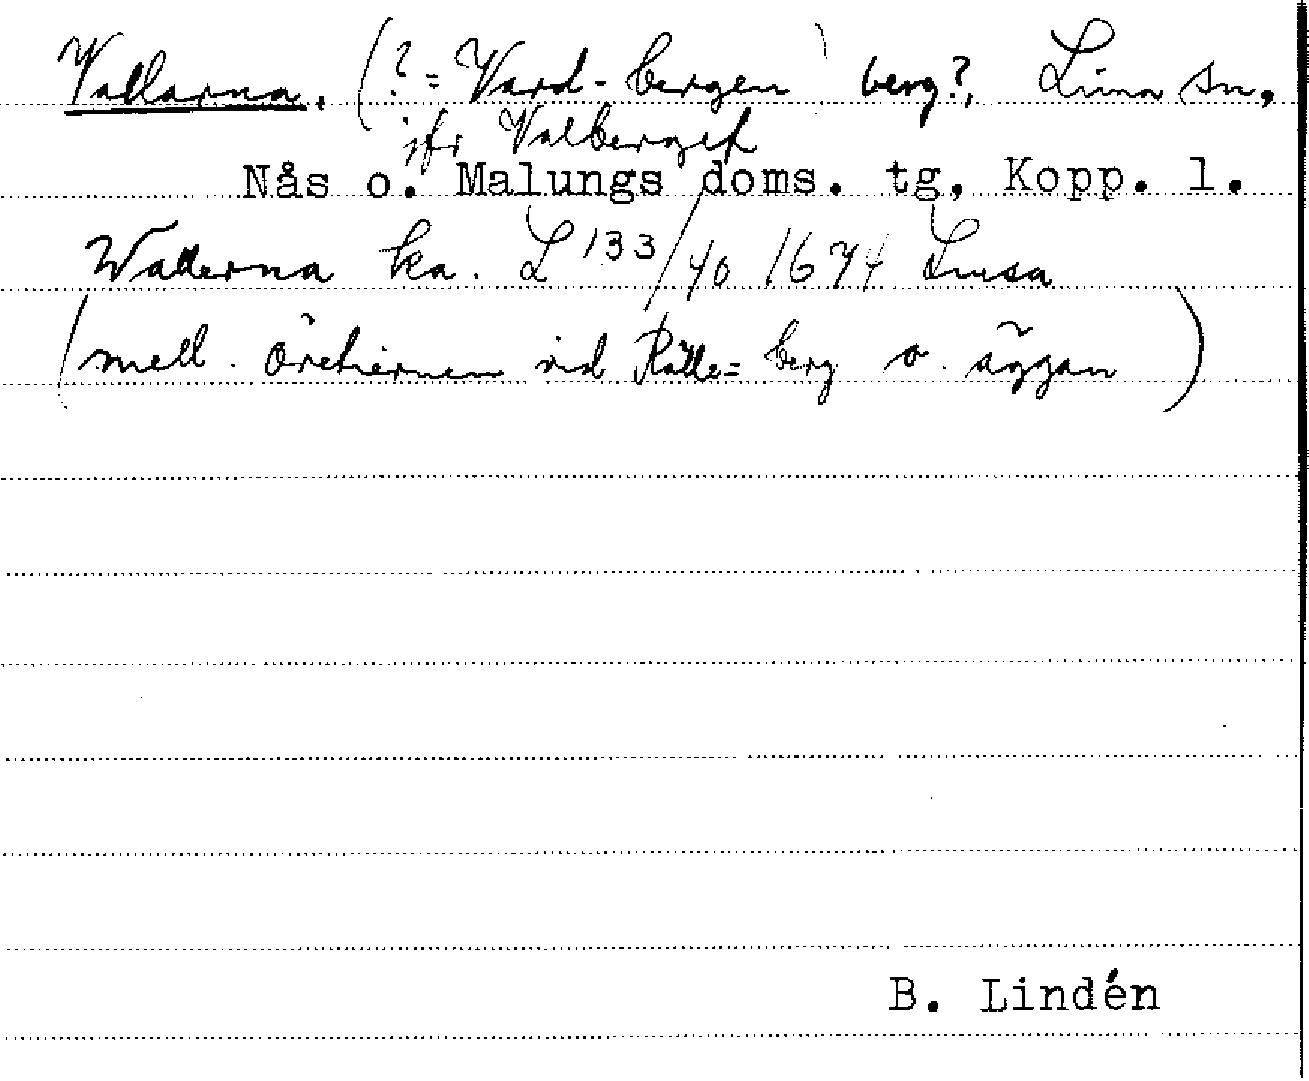 Vallarna. (? = Vard-bergen) berg?, Lima sn,
jfr Valberget
Nås o. Malungs doms. tg, Kopp. l.
Wallerna ka. L 133/40 1674
(mell. vid Rälle= berg o. äggan)
B. Lindén